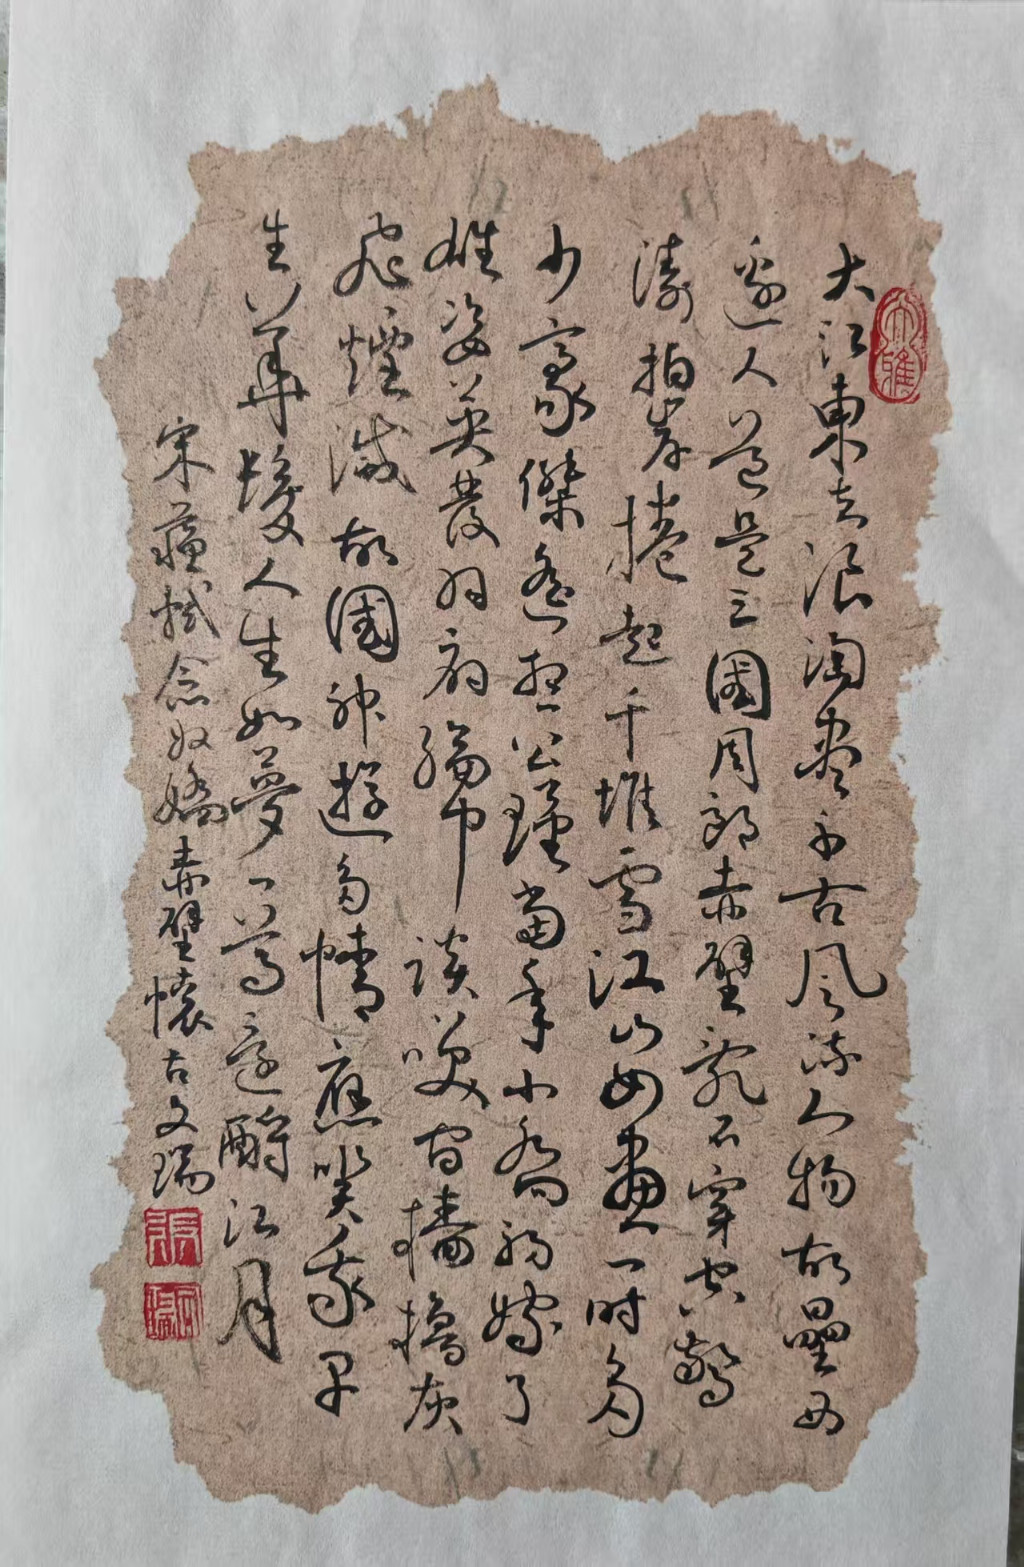 大江東去浪淘盡千古風流人物故壘西
邊人道是三國周郎赤壁亂石穿空驚
濤拍岸捲起千堆雪江山如畫一時多
少豪傑遙想公瑾當年小喬初嫁了
雄姿英發羽扇綸巾談笑間檣櫓灰
飛煙滅故國神遊多情應笑我早
生華髮人生如夢一尊還酹江月
宋蘇軾念奴嬌赤壁懷古文瑞